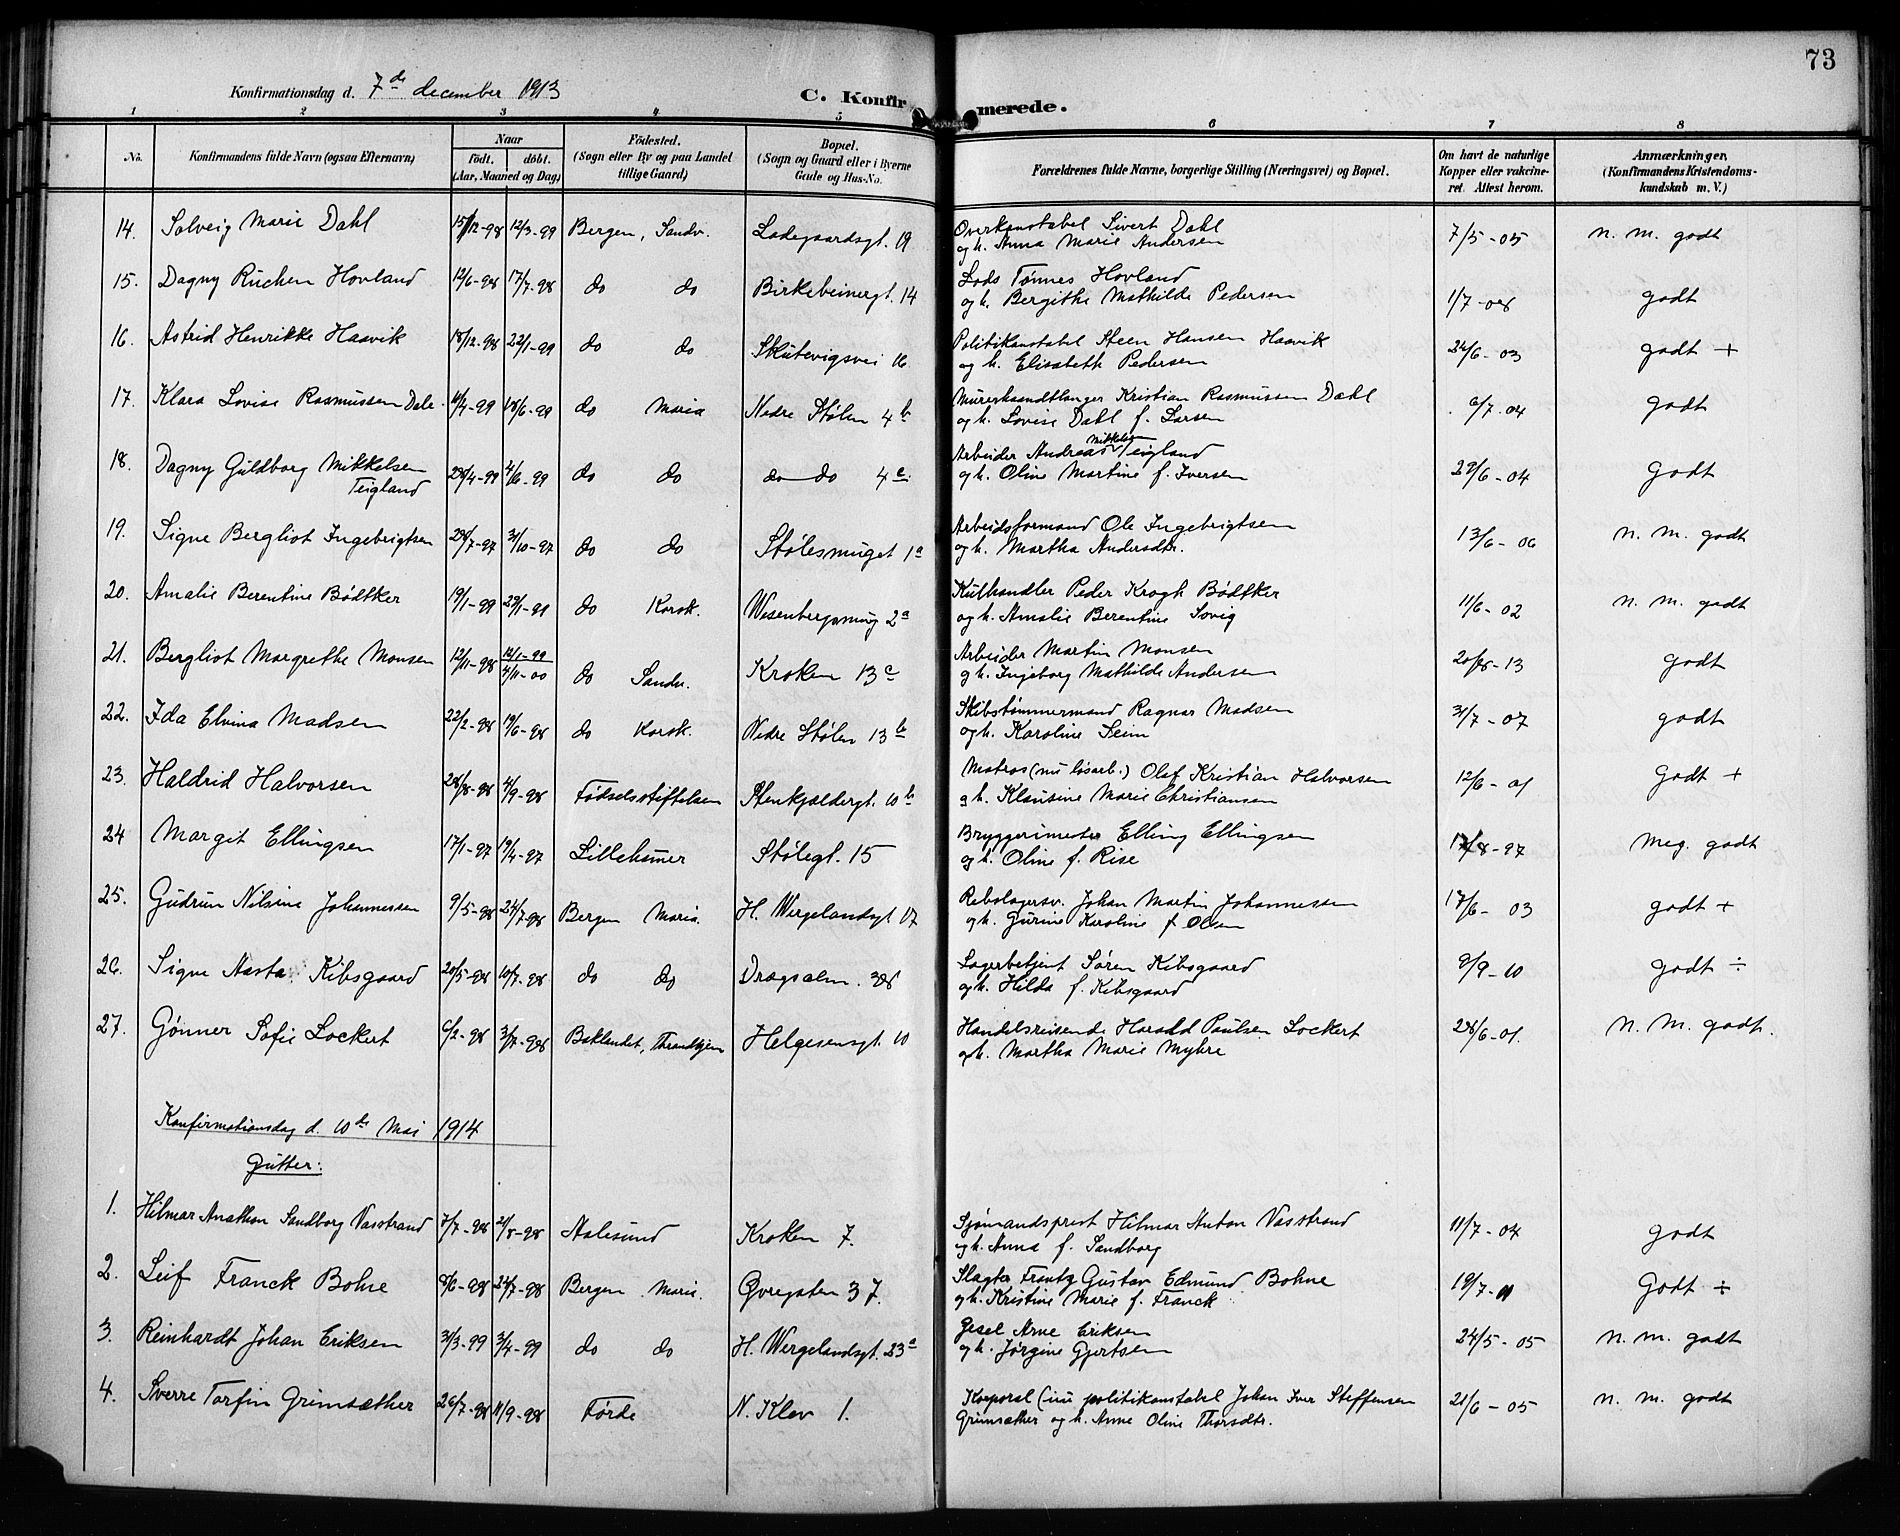 73
Konfirmationsdag d. 7de december 1913
C. Konfirmerede.
1 2 3 4 5 6 7 8
No. Konfirmandens fulde Navn (ogsaa Efternavn) Naar født. døbt. (Aar, Maaned og Dag) Fødested. (Sogn eller By og paa Landet tillige Gaard) Bopæl. (Sogn og Gaard eller i Byerne Gade og Hus-No. Forældrenes fulde Navne, borgerlige Stilling (Næringsvei) og Bopæl. Om havt de naturlige Kopper eller vakcineret. Attest herom. Anmærkninger, (Konfirmandens Kristendomskundskab m. V.)
14. Solveig Marie Dahl 15/12-98 12/3-99 Bergen, Sandv. Ladegaardsgt. 19 Overkonstabel Sivert Dahl
og h. Anna Marie Andersen 7/5-05 n. m. godt
15. Dagny Ruchen Hovland 12/6-98 17/7-98 do do Birkebeinergt. 14 Lods Tønnes Hovland
og h. Bergithe Mathilde Pedersen 1/7-08 godt
16. Astrid Henrikke Haavik 18/12-98 22/1-99 do do Skutevigsvei 16 Politikonstabel Steen Hansen Haavik
og h. Elisabeth Pedersen 24/6-03 godt +
17. Klara Lovise Rasmussen Dale 11/4-99 18/6-99 do Maria Nedre Stølen 4b Murerhaandtlanger Kristian Rasmussen Dahl
og h. Lovise Dahl f. Larsen 6/7-04 godt
18. Dagny Guldborg Mikkelsen
Teigland 28/4-99 4/6-99 do do do do 4c Arbeider Andreas Mikkelsen Teigland
og h. Oline Martine f. Iversen 29/6-04 godt
19. Signe Bergliot Ingebrigtsen 28/7-97 31/10-97 do do Stølesmuget 1a Arbeidsformand Ole Ingebrigtsen
og h. Martha Andersdtr. 13/6-06 n. m. godt
20. Amalie Berentine Bødtker 19/1-99 29/1-99 do Korsk. Wesenbergsmug 2a Kulhandler Peder Krogh Bødtker
og h. Amalie Berentine Lovig 11/6-02 n. m. godt
21. Bergliot Margrethe Monsen 12/11-98 12/1-99
4/11-00 do Sandv. Kroken 13c Arbeider Martin Monsen
og h. Ingeborg Mathilde Andersen 20/8-13 godt
22. Ida Elvina Madsen 22/2-98 19/6-98 do Korsk. Nedre Stølen 13b Skibstømmermand Ragnar Madsen
og h. Karoline Seim 31/7-07 godt
23. Haldrid Halvorsen 28/8-98 4/9-98 Fødselsstiftelsen Stenkjeldergt. 10b Matros (nu løsarb.) Olaf Kristian Halvorsen
og h. Klausine Marie Christiansen 12/6-01 godt +
24 Margit Ellingsen 17/1-97 19/4-97 Lillehamer Stølegt. 15 Bryggerimester Elling Ellingsen
og h. Oline f. Rise 17/8-97 Meg. godt
25. Gudrun Nilsine Johannessen 9/5-98 24/7-98 Bergen Maria. H. Wergelandsgt 17 Rebslagersv. Johan Martin Johannessen
og h. Gurine Karoline f. Olsen 17/6-03 godt +
26. Signe Aasta Kibsgaard 20/5-98 10/7-98 do do Dragsalm. 38 Lagerbetjent Søren Kibsgaard
og h. Hilda f. Kibsgaard 9/9-10 godt ÷
27. Gønner Sofie Lockert 6/2-98 3/7-98 Baklandet, Throndhjem Helgesensgt. 10 Handelsreisende Harald Paulsen Lockert
og h. Martha Marie Myhre 28/6-01. n. m. godt.
Konfirmationsdag d. 10de Mai 1914
Gutter:
1. Hilmar Anathon Sandborg Vasstrand 7/7-98 21/8-98 Aalesund Kroken 7. Sjømandsprest Hilmar Anton Vasstrand
og h. Anna f. Sandborg 11/7-04 godt
2. Leif Franck Bohne 8/6-98 24/7-98 Bergen Marie. Øvregaten 37. Slagter Frantz Gustav Edmund Bohne
og h. Kristine Marie f. Franck 19/7-11 Godt ÷
3. Reinhardt Johan Eriksen 31/3-99 3/4-99 do do H. Wergelandsgt. 23a Gesel Arne Eriksen
og h. Jørgine Gjertsen 24/5-05 n. m. godt
4. Sverre Torfin Grimsæther 26/7-98 11/9-98 Førde N. Klev 1. Korporal (nu politikonstabel Johan Iver Steffensen
Grimsæther og h. Anne Oline Thorsdtr. 21/6-05 n. m. godt